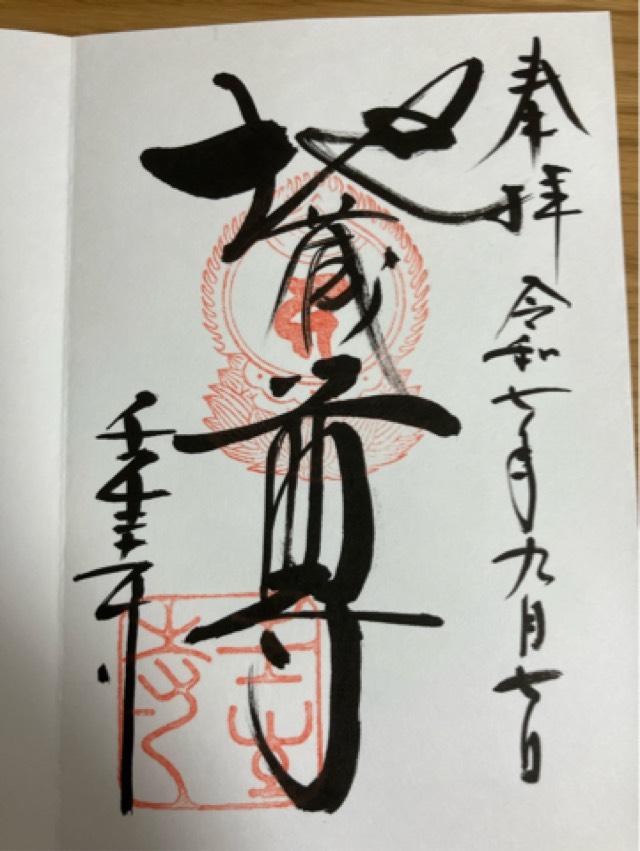 奉拝 令和七年九月七日
地蔵尊
壬生寺